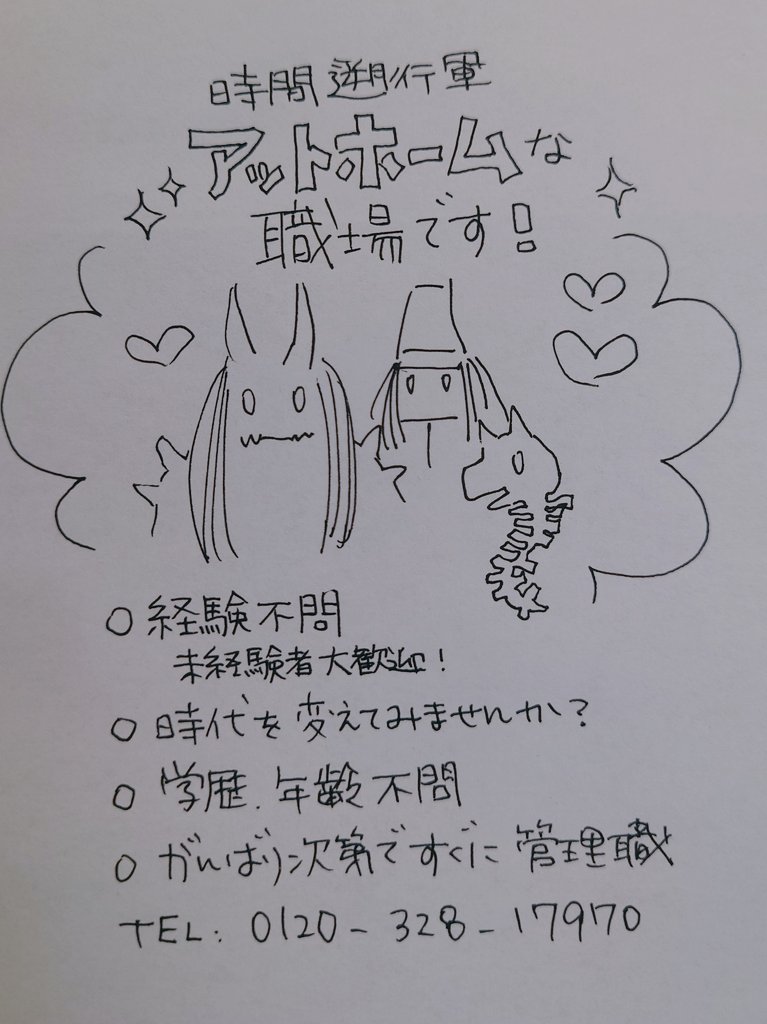 時間遡行軍
アットホームな
職場です!
○ 経験不問
未経験者大歓迎!
○ 時代を変えてみませんか?
○ 学歴、年齢不問
○ がんばり次第ですぐに管理職
TEL: 0120-328-17970